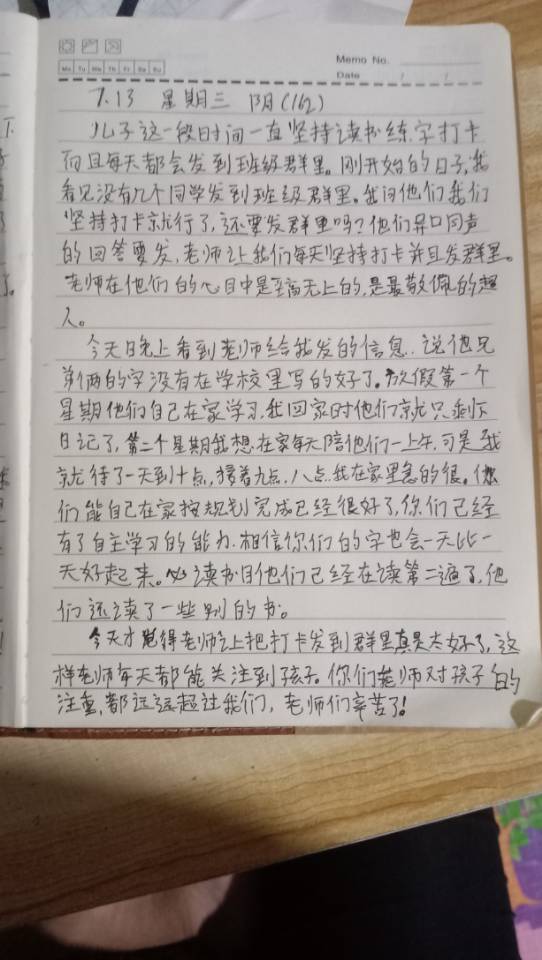 Memo No.
Mo Tu We Th Fr Sa Su
Date / /
7.13 星期三 阴(162)
儿子这一段时间一直坚持读书练字打卡
而且每天都会发到班级群里。刚开始的日子,我
看见没有几个同学发到班级群里。我问他们我们
坚持打卡就行了,还要发群里吗?他们异口同声
的回答要发,老师让我们每天坚持打卡并且发群里。
老师在他们的心目中是至高无上的,是最敬佩的
人。
今天晚上看到老师给我发的信息,说他兄
弟俩的字没有在学校里写的好了。放假第一个
星期他们自己在家学习,我回家时他们就只剩下
日记了,第二个星期我想在家每天陪他们一上午,可是我
就待了一天到十点,接着九点,八点我在家里急的很。他
们能自己在家按规划完成已经很好了,你们已经
有了自主学习的能力.相信你们的字也会一天比一
天好起来。读书目他们已经在读第二遍了,他
们还读了一些别的书。
今天才觉得老师让把打卡发到群里真是太好了,这
样老师每天都能关注到孩子。你们老师对孩子的
注重,都远远超过我们,老师们辛苦了!